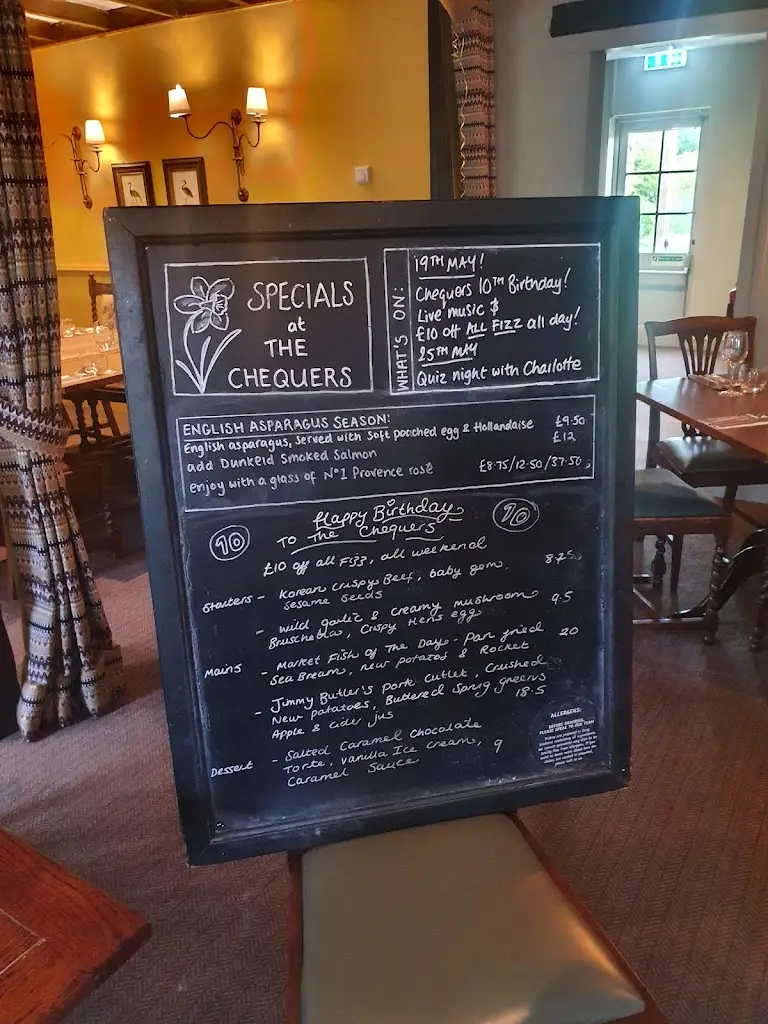 SPECIALS
at
THE
CHEQUERS
WHAT'S ON:
19TH MAY!
Chequers 10TH Birthday!
Live music &
£10 off ALL FIZZ all day!
25TH MAY
Quiz night with Charlotte
ENGLISH ASPARAGUS SEASON:
English asparagus, served with soft poached egg & Hollandaise £9.50
add Dunkeld Smoked Salmon £12
enjoy with a glass of No1 Provence rosé £8.75/12.50/37.50
Happy Birthday
TO The Chequers
10
10
£10 off all Fizz, all weekend
Starters - Korean crispy Beef, baby gem, 8.75
Sesame Seeds
- Wild garlic & creamy mushroom 9.5
Bruschetta, Crispy Hens egg
Mains - Market Fish Of The Day - Pan fried 20
Sea Bream, new potatoes & Rocket
- Jimmy Butler's Pork Cutlet, Crushed
New potatoes, Buttered Sprig greens
Apple & cider jus 18.5
Dessert - Salted Caramel Chocolate
Torte, Vanilla Ice cream, 9
Caramel Sauce
ALLERGENS:
BEFORE ORDERING,
PLEASE SPEAK TO OUR TEAM